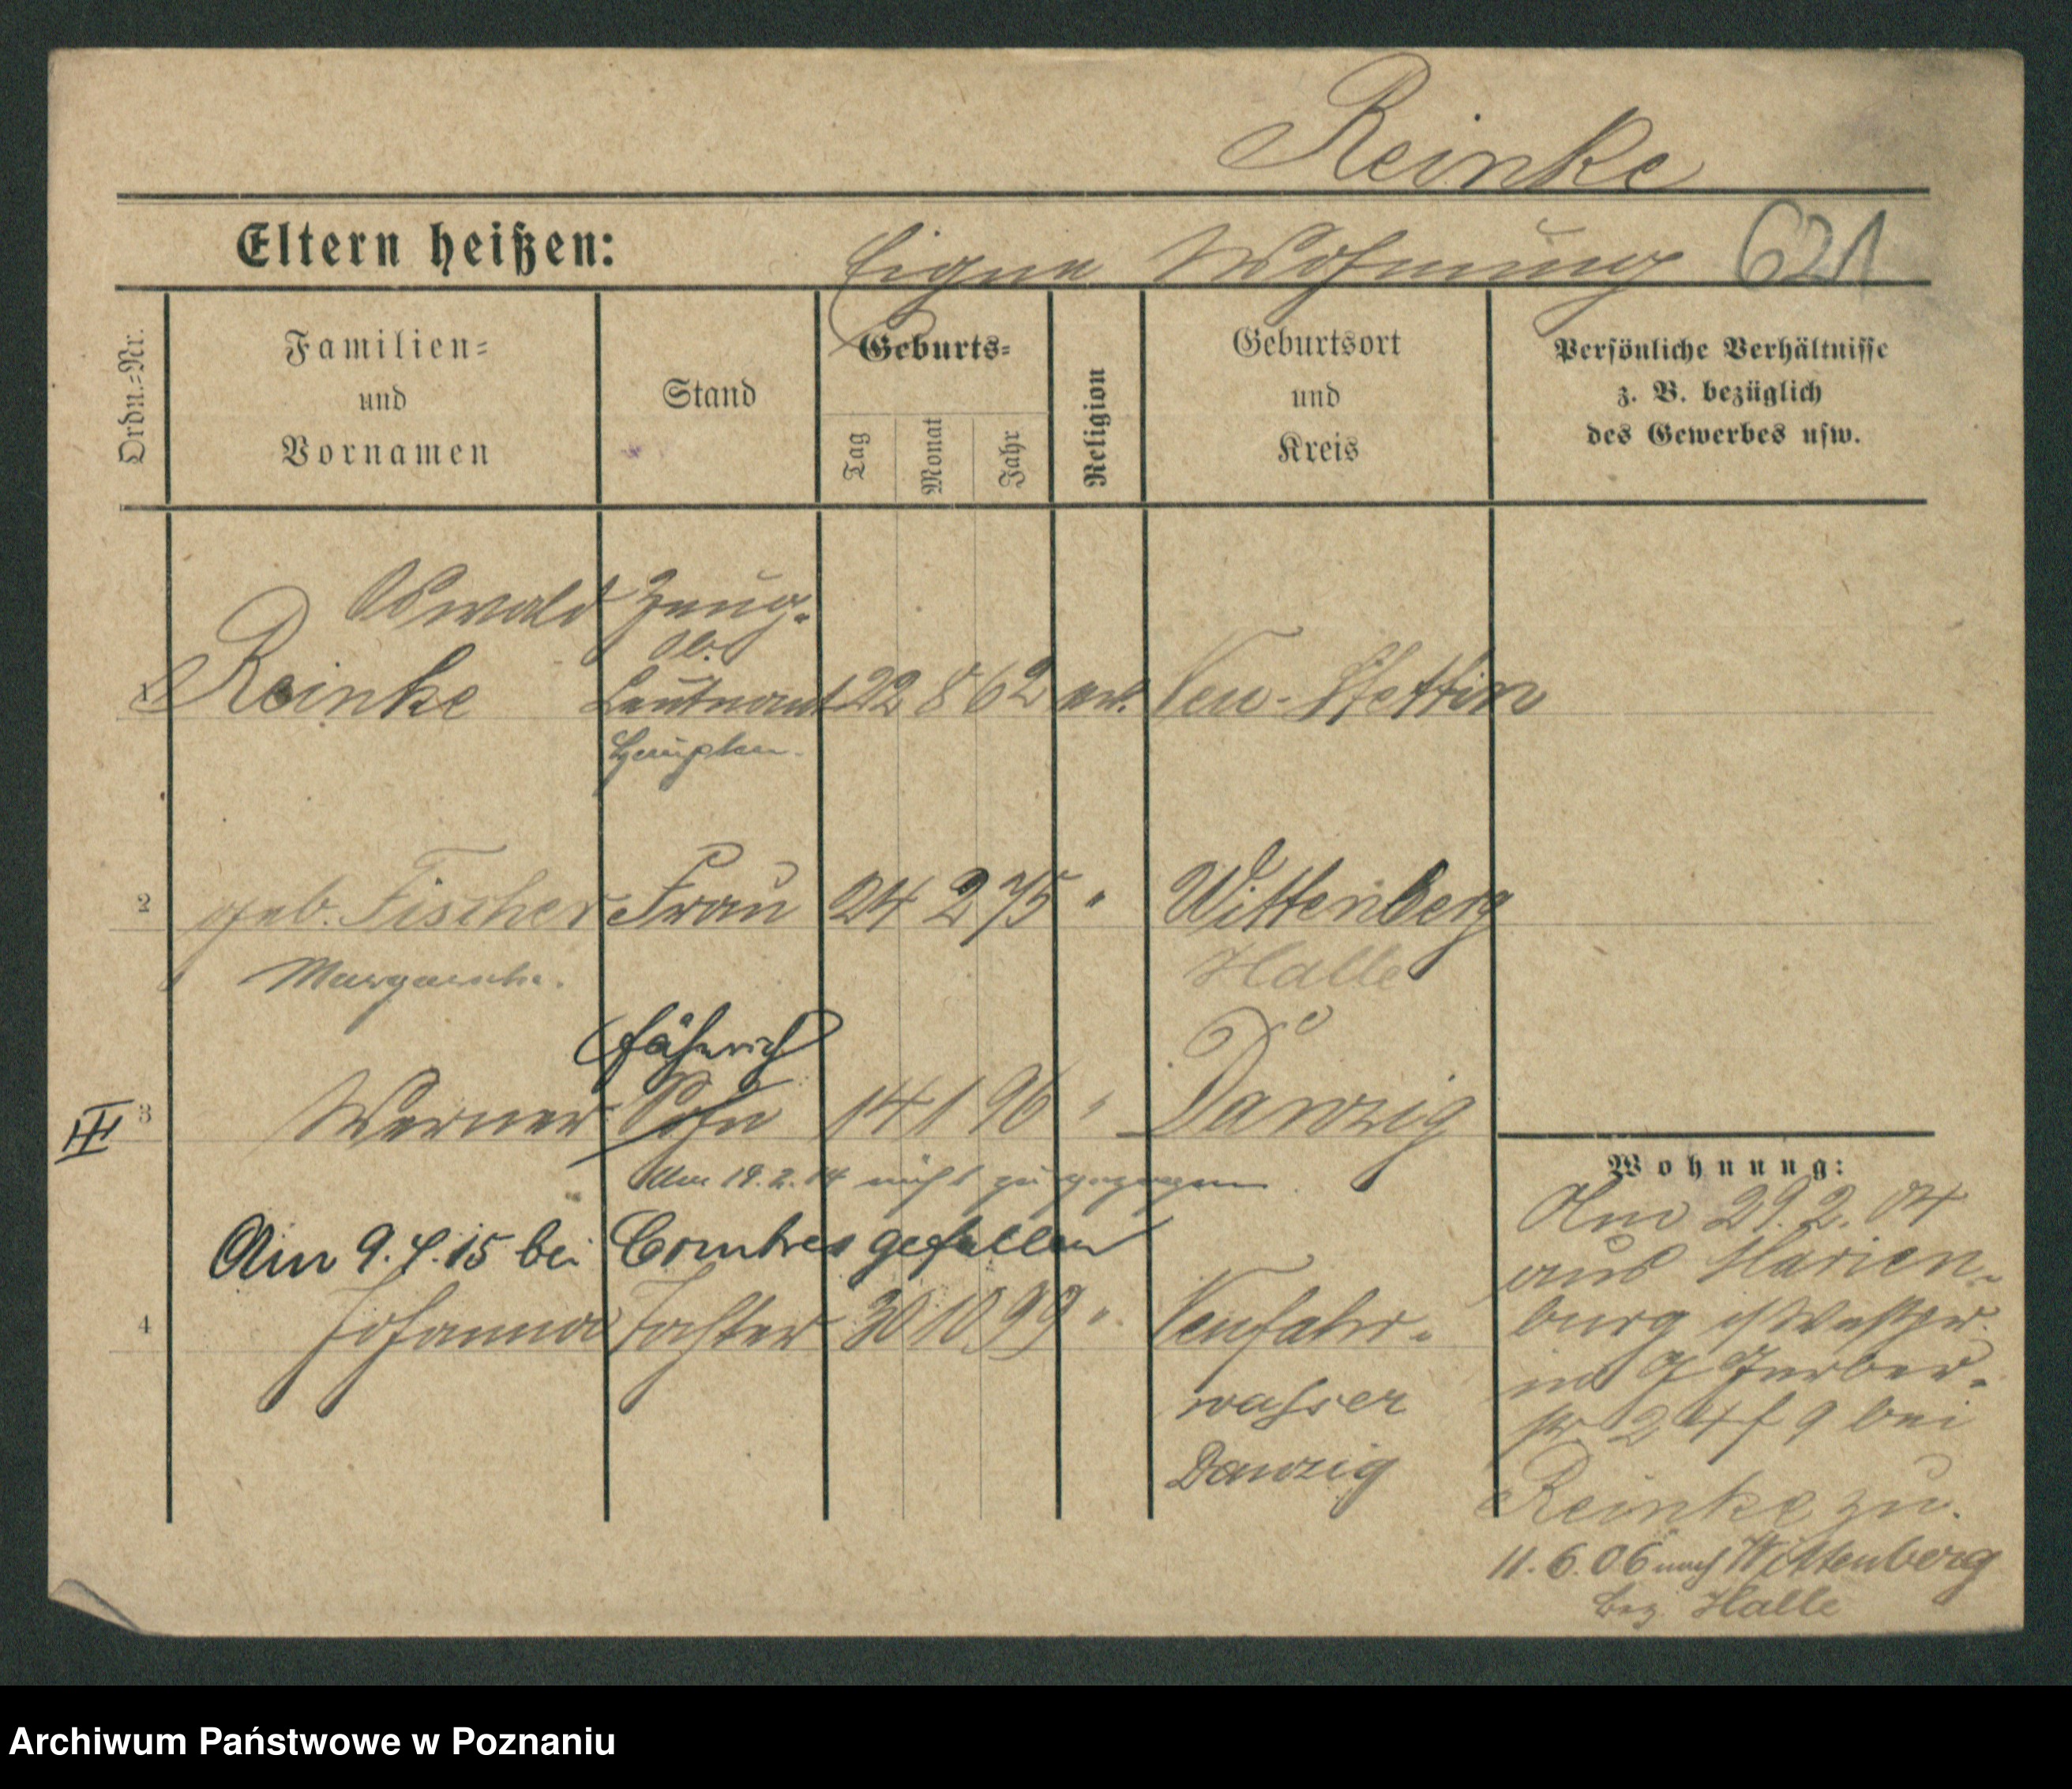 Reinke
Eltern heißen: Eigene Wohnung 621
Ordn.=Nr.
Familien=
und
Vornamen
Stand
Geburts=
Tag
Monat
Jahr
Religion
Geburtsort
und
Kreis
Persönliche Verhältnisse
z. B. bezüglich
des Gewerbes usw.
Oswald Zeug-
Ob.
1 Reinke Leutnant 22 8 62 ev. Neu-Stettin
Hauptm.
2 geb. Fischer Frau 24 2 75 " Wittenberg
Margarethe. Halle
Fähnrich
III 3 Werner Sohn 14 1 96 " Danzig
Am 19.2.14 nicht zugezogen
Am 9.4.15 bei Combres gefallen
4 Johanna Tochter 30 10 99 " Neufahr-
wasser
Danzig
Wohnung:
Am 29.2.04
aus Marien-
burg Westpr.
in Gerber-
str 2 bei
Reinke zu.
11.6.06 nach Wittenberg
Bez. Halle
Archiwum Państwowe w Poznaniu